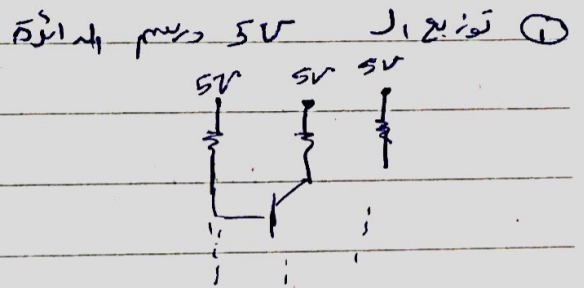 ① توزيع الـ 5V ورسم الدائرة
5V 5V 5V